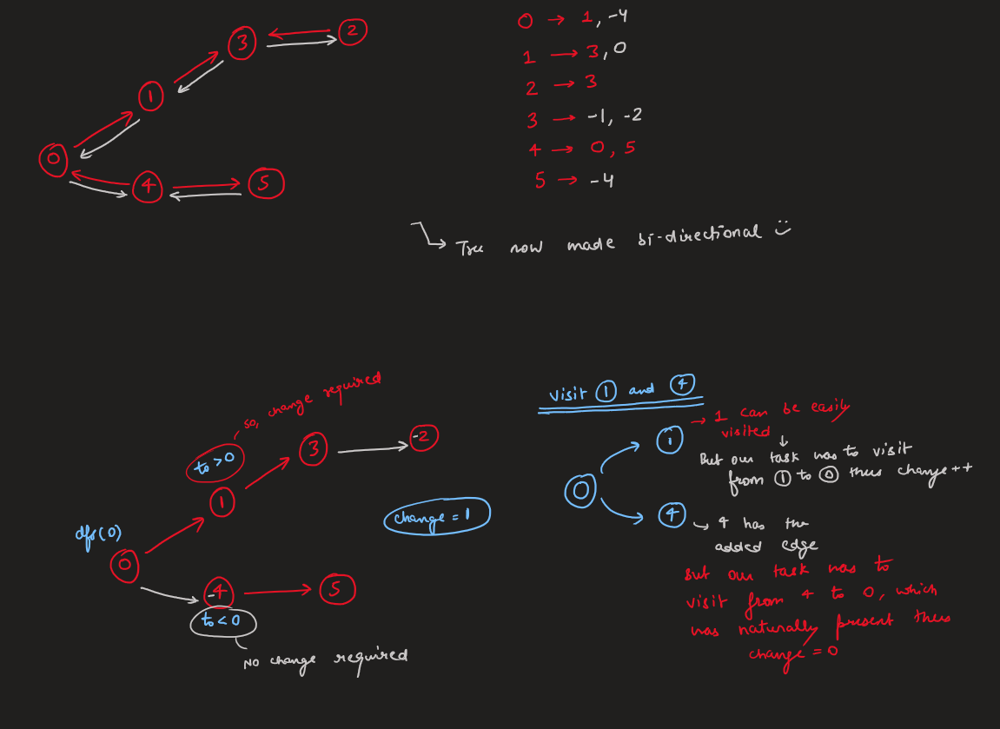 3
2
1
0
4
5
0 → 1, -4
1 → 3, 0
2 → 3
3 → -1, -2
4 → 0, 5
5 → -4
Tree now made bi-directional
so, change required
to > 0
3
-2
1
dfs(0)
0
-4
5
to < 0
No change required
change = 1
visit 1 and 4
0
1
→ 1 can be easily
visited
But our task was to visit
from 1 to 0 thus change++
4
→ 4 has the
added edge
But our task was to
visit from 4 to 0, which
was naturally present thus
change = 0